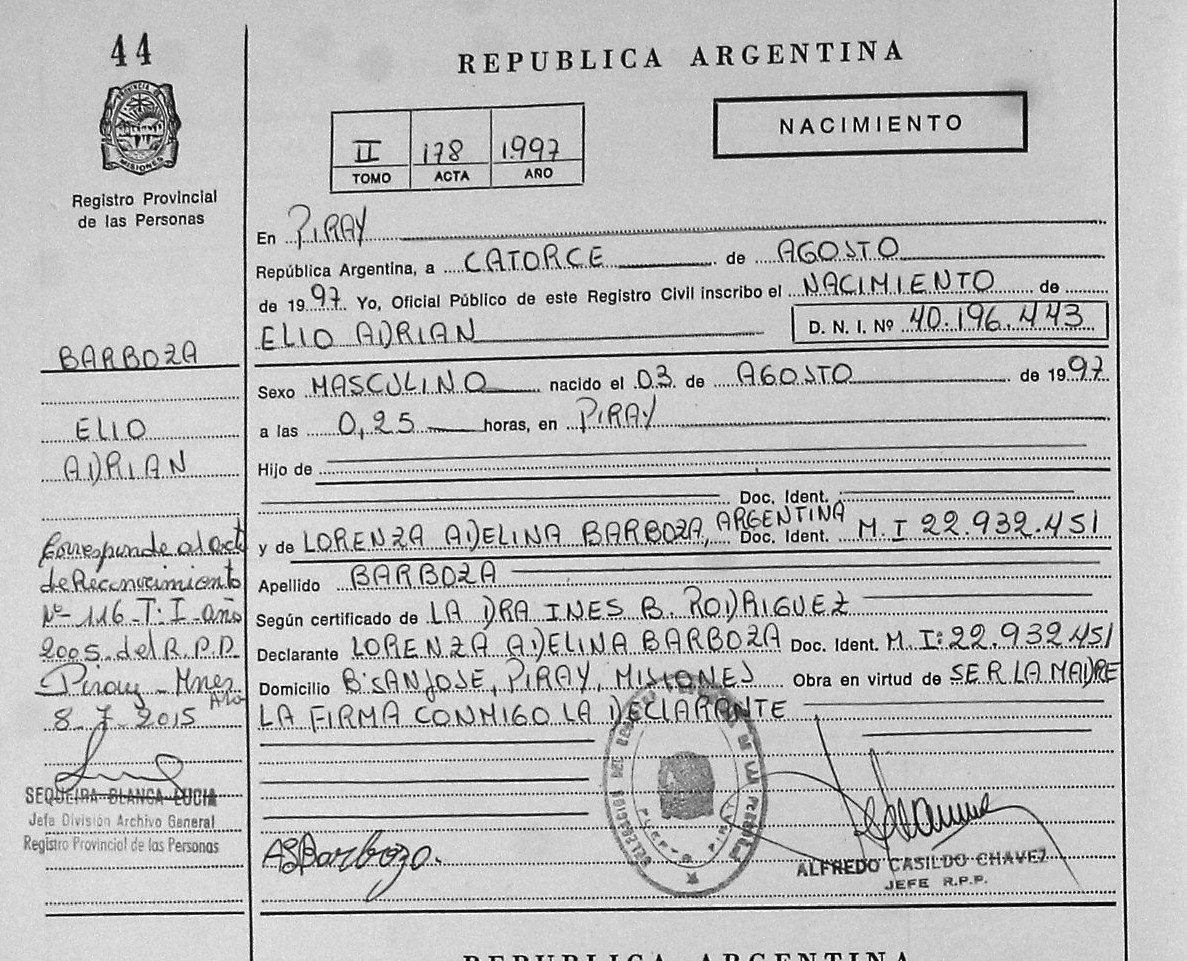 44
PROVINCIA D
MISIONES
Registro Provincial
de las Personas
BARBOZA
ELIO
ADRIAN
Corresponde al Acta
de Reconocimiento
Nº 116-T:I-año
2005 del R.P.P.
Piray - Mnes
8-7-2015
SEQUEIRA BLANCA LUCIA
Jefe División Archivo General
Registro Provincial de las Personas
REPUBLICA ARGENTINA
NACIMIENTO
II 178 1.997
TOMO ACTA AÑO
En PIRAY
República Argentina, a CATORCE de AGOSTO
de 1997. Yo, Oficial Público de este Registro Civil inscribo el NACIMIENTO de
ELIO ADRIAN D. N. I. Nº 40.196.443
Sexo MASCULINO nacido el 03 de AGOSTO de 1997
a las 0,25 horas, en PIRAY
Hijo de
Doc. Ident.
y de LORENZA ADELINA BARBOZA, ARGENTINA Doc. Ident. M.I 22.932.451
Apellido BARBOZA
Según certificado de LA DRA INES B. RODRIGUEZ
Declarante LORENZA ADELINA BARBOZA Doc. Ident. M.I: 22.932.451
Domicilio Bº SAN JOSE, PIRAY, MISIONES Obra en virtud de SER LA MADRE
LA FIRMA CONMIGO LA DECLARANTE
PUERTO PIRAY
Barboza.
ALFREDO CASILDO CHAVEZ
JEFE R.P.P.
REPUBLICA ARGENTINA